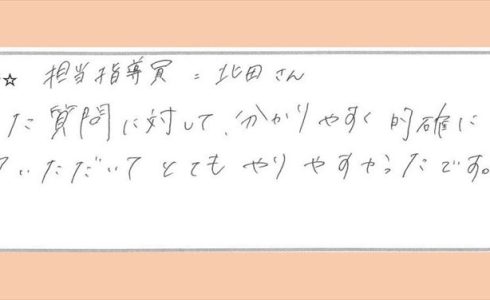 ☆ 担当指導員:北田さん
た質問に対して、分かりやすく的確に
ていただいてとてもやりやすかったです。